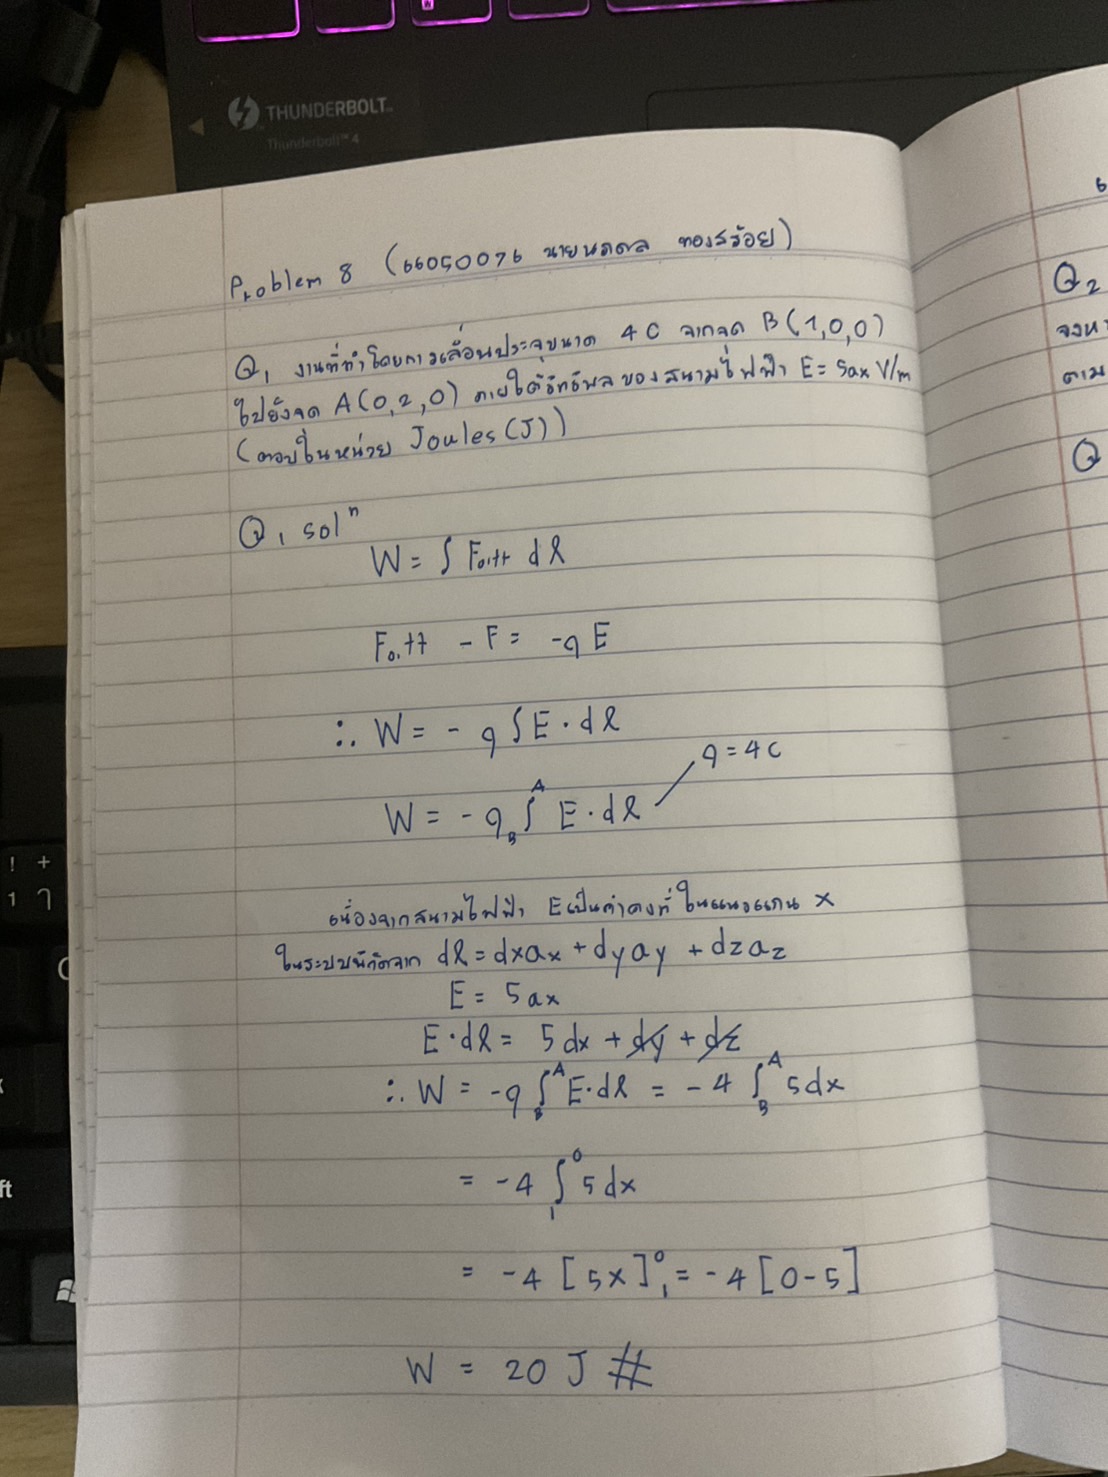 THUNDERBOLT™
Thunderbolt™ 4
Problem 8 (66050076 นายนภดล ทองสร้อย)
Q1 งานที่ทำโดยการเลื่อนประจุขนาด 4 C จากจุด B(1,0,0)
ไปยังจุด A(0,2,0) ภายใต้อิทธิพลของสนามไฟฟ้า E = 5ax V/m
(ตอบในหน่วย Joules(J))
Q1 solⁿ
W = ∫ F dl
- F = -q E
∴ W = - q ∫ E · dl
q = 4 C
W = - q ∫_B^A E · dl
เนื่องจากสนามไฟฟ้า E เป็นค่าคงที่ ในแนวแกน x
dl = dxax + dyay + dzaz
E = 5ax
E · dl = 5 dx + dy + dz
∴ W = -q ∫_B^A E · dl = - 4 ∫_B^A 5dx
= -4 ∫_1^0 5 dx
= -4 [5x]_1^0 = -4 [0-5]
W = 20 J #
Q2
จงหา
ตาม
Q
! +
1 ๅ
ft